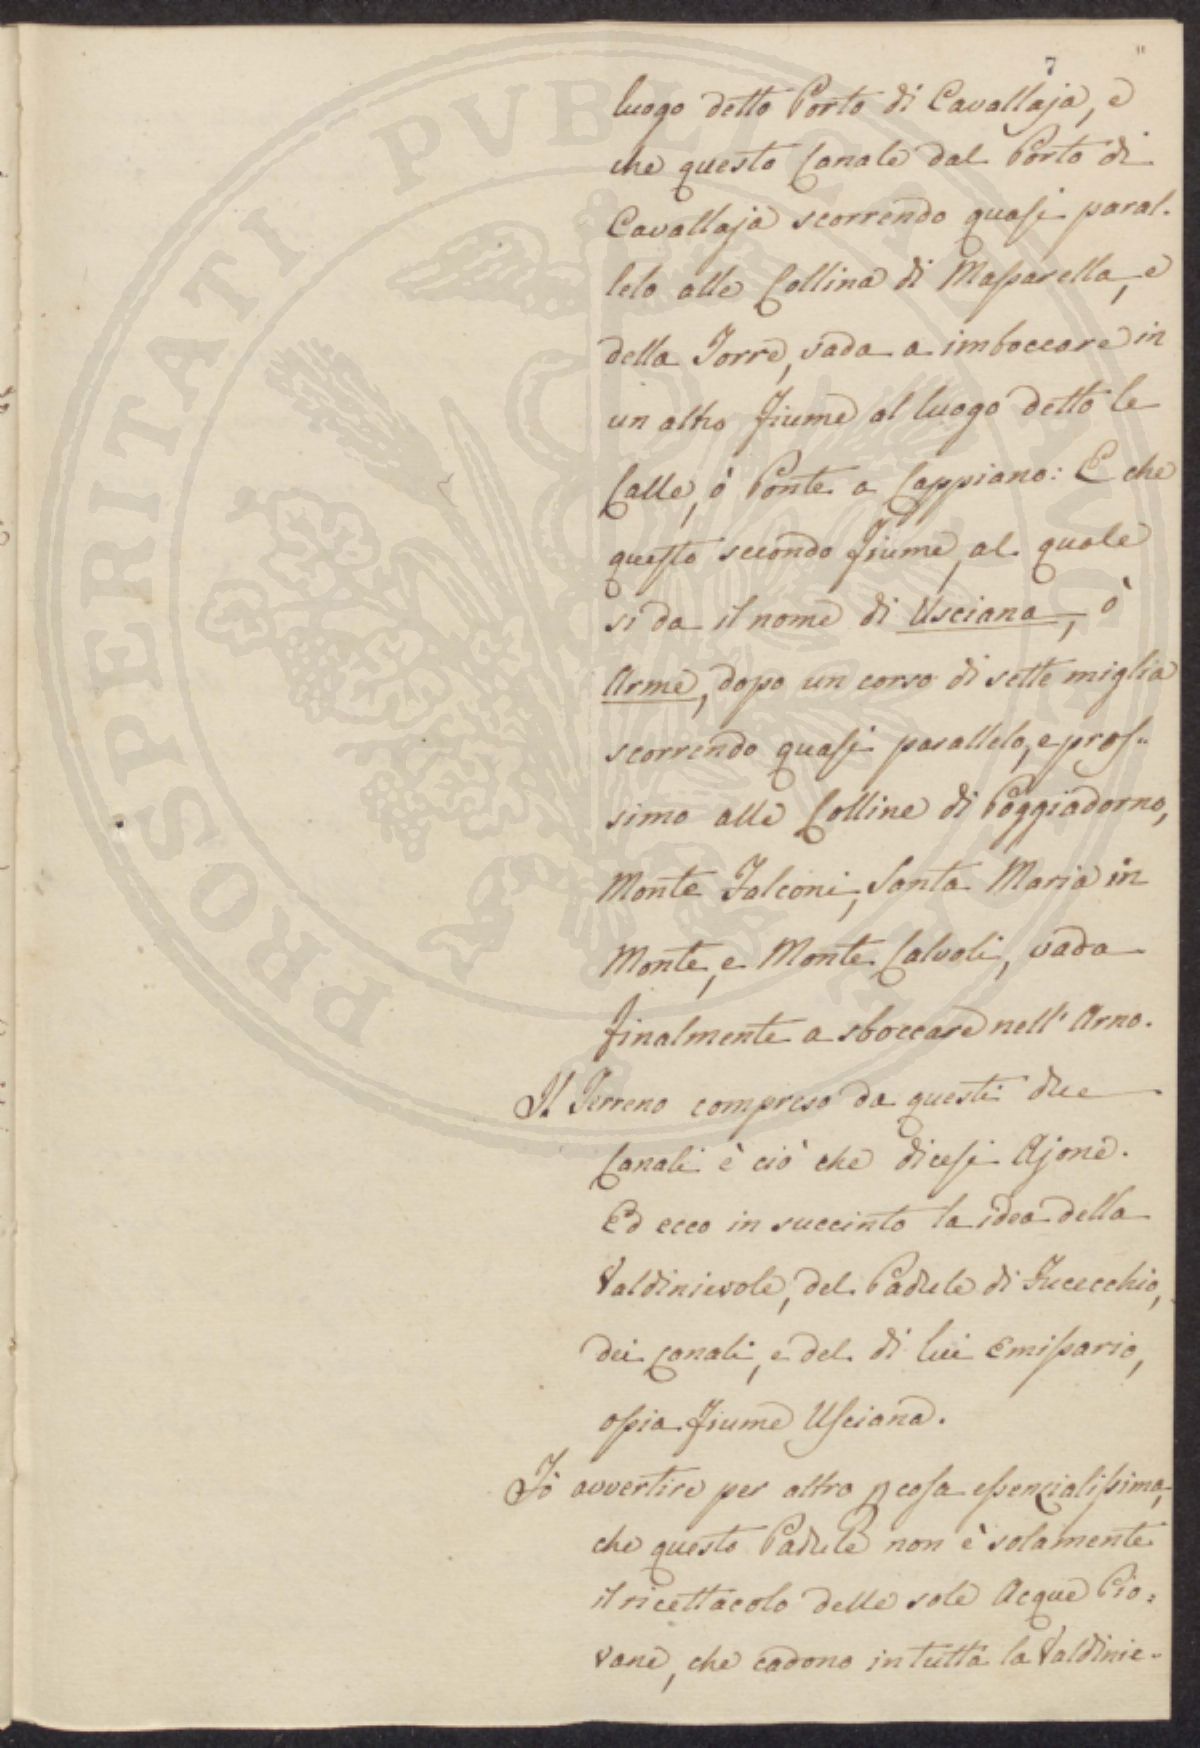 7
luogo detto Porto di Cavallaja, e
che questo Canale dal Porto di
Cavallaja scorrendo quasi paral-
lelo alle Collina di Massarella, e
della Torre, vada a imboccare in
un altro Fiume al luogo detto le
Calle, ò Ponte a Cappiano: E che
questo secondo Fiume, al quale
si da il nome di Usciana, ò
Arme, dopo un corso di sette miglia
scorrendo quasi parallelo, e pros-
simo alle Colline di Poggiadorno,
Monte Falconi, Santa Maria in
Monte, e Monte Calvoli, vada
finalmente a sboccare nell' Arno.
Il Terreno compreso da questi due
Canali è ciò che dicesi Ajone.
Ed ecco in succinto la idea della
Valdinievole, del Padule di Fucecchio,
dei canali, e del di lui Emissario,
ossia Fiume Usciana.
Fò avvertire per altro p cosa essenzialissima,
che questo Padule non è solamente
il ricettacolo delle sole Acque Pio-
vane, che cadono in tutta la Valdinie-
PROSPERITATI PVBLICAE